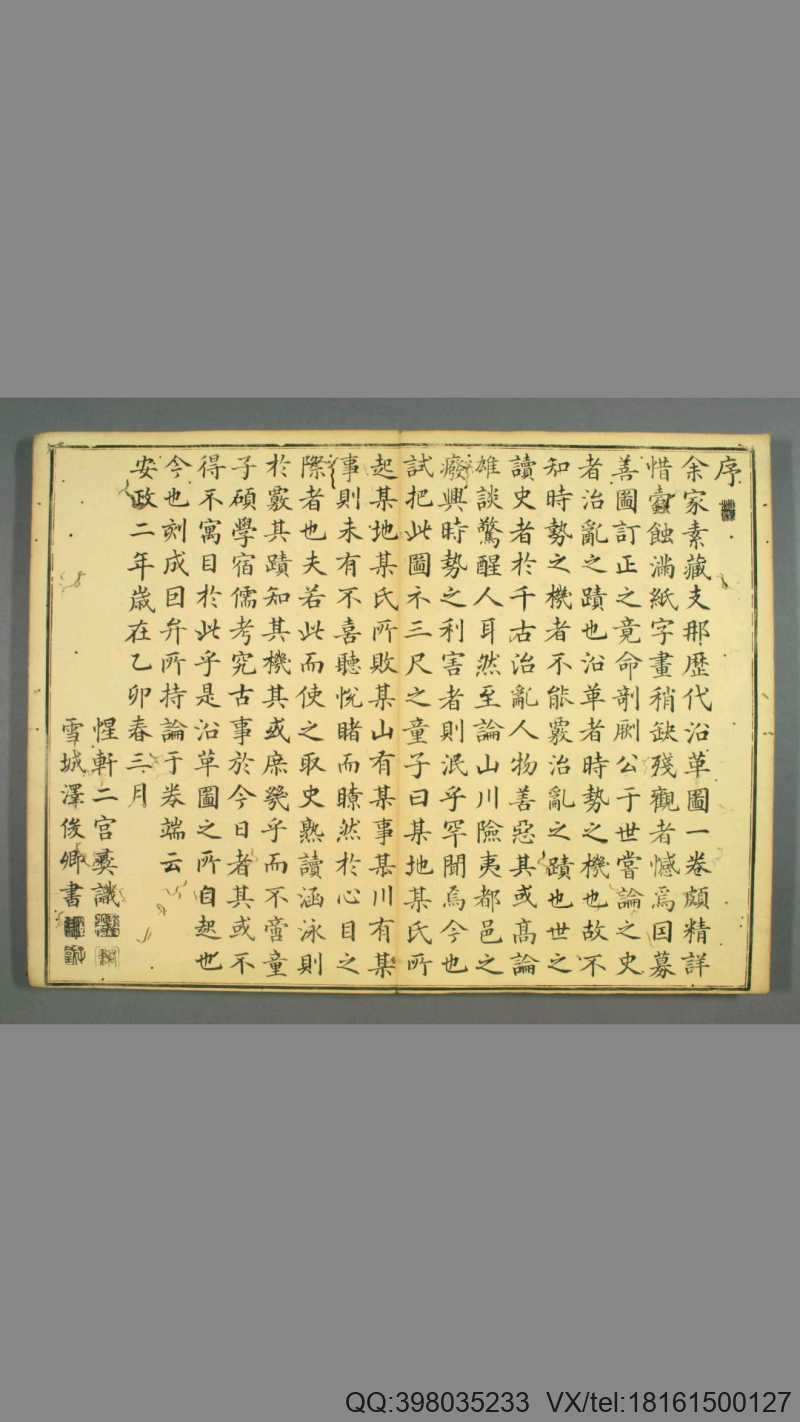 序
余家素藏支那歷代沿革圖一卷頗精詳
惜蠧蝕滿紙字畫稍缺殘觀者憾焉因募
善圖訂正之竟命剞劂公于世嘗論之史
者治亂之蹟也沿革者時勢之機也故不
知時勢之機者不能覈治亂之蹟也世之
讀史者於千古治亂人物善惡其或高論
雄談驚醒人耳然至論山川險夷都邑之
癈興時勢之利害者則泯乎罕聞焉今也
試把此圖示三尺之童子曰某地某氏所
起某地某氏所敗某山有某事某川有某
事則未有不喜聽悅睹而瞭然於心目之
際者也夫若此而使之取史熟讀涵泳則
於覈其蹟知其機其或庶幾乎而不啻童
子碩學宿儒考究古事於今日者其或不
得不寓目於此乎是沿革圖之所自起也
今也刻成因弁所持論于券端云
安政二年歲在乙卯春三月
惺軒二宮彝識
雪城澤俊卿書
QQ:398035233 VX/tel:18161500127